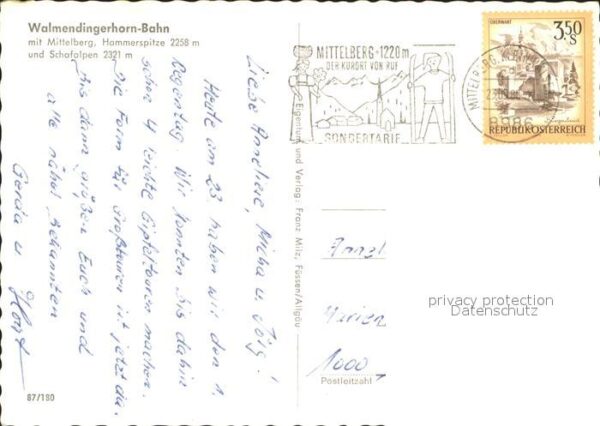 Walmendingerhorn-Bahn
mit Mittelberg, Hammerspitze 2258 m
und Schafalpen 2321 m
Liebe Anneliese, Micha u. Jörg!
Heute am 23. haben wir den 1.
Regentag. Wir konnten bis dahin
schon 4 leichte Gipfeltouren machen.
Die Form für Großtouren ist jetzt da.
Bis dann grüßen Euch und
alle näher Bekannten
Gerda u Horst
87/180
Eigentum und Verlag: Franz Milz, Füssen/Allgäu
MITTELBERG-1220m
DER KURORT VON RUF
SONDERTARIF
MITTELBERG
8986
ÜBERWART
3.50
S
REPUBLIK ÖSTERREICH
Marien
1000
Postleitzahl
privacy protection
Datenschutz